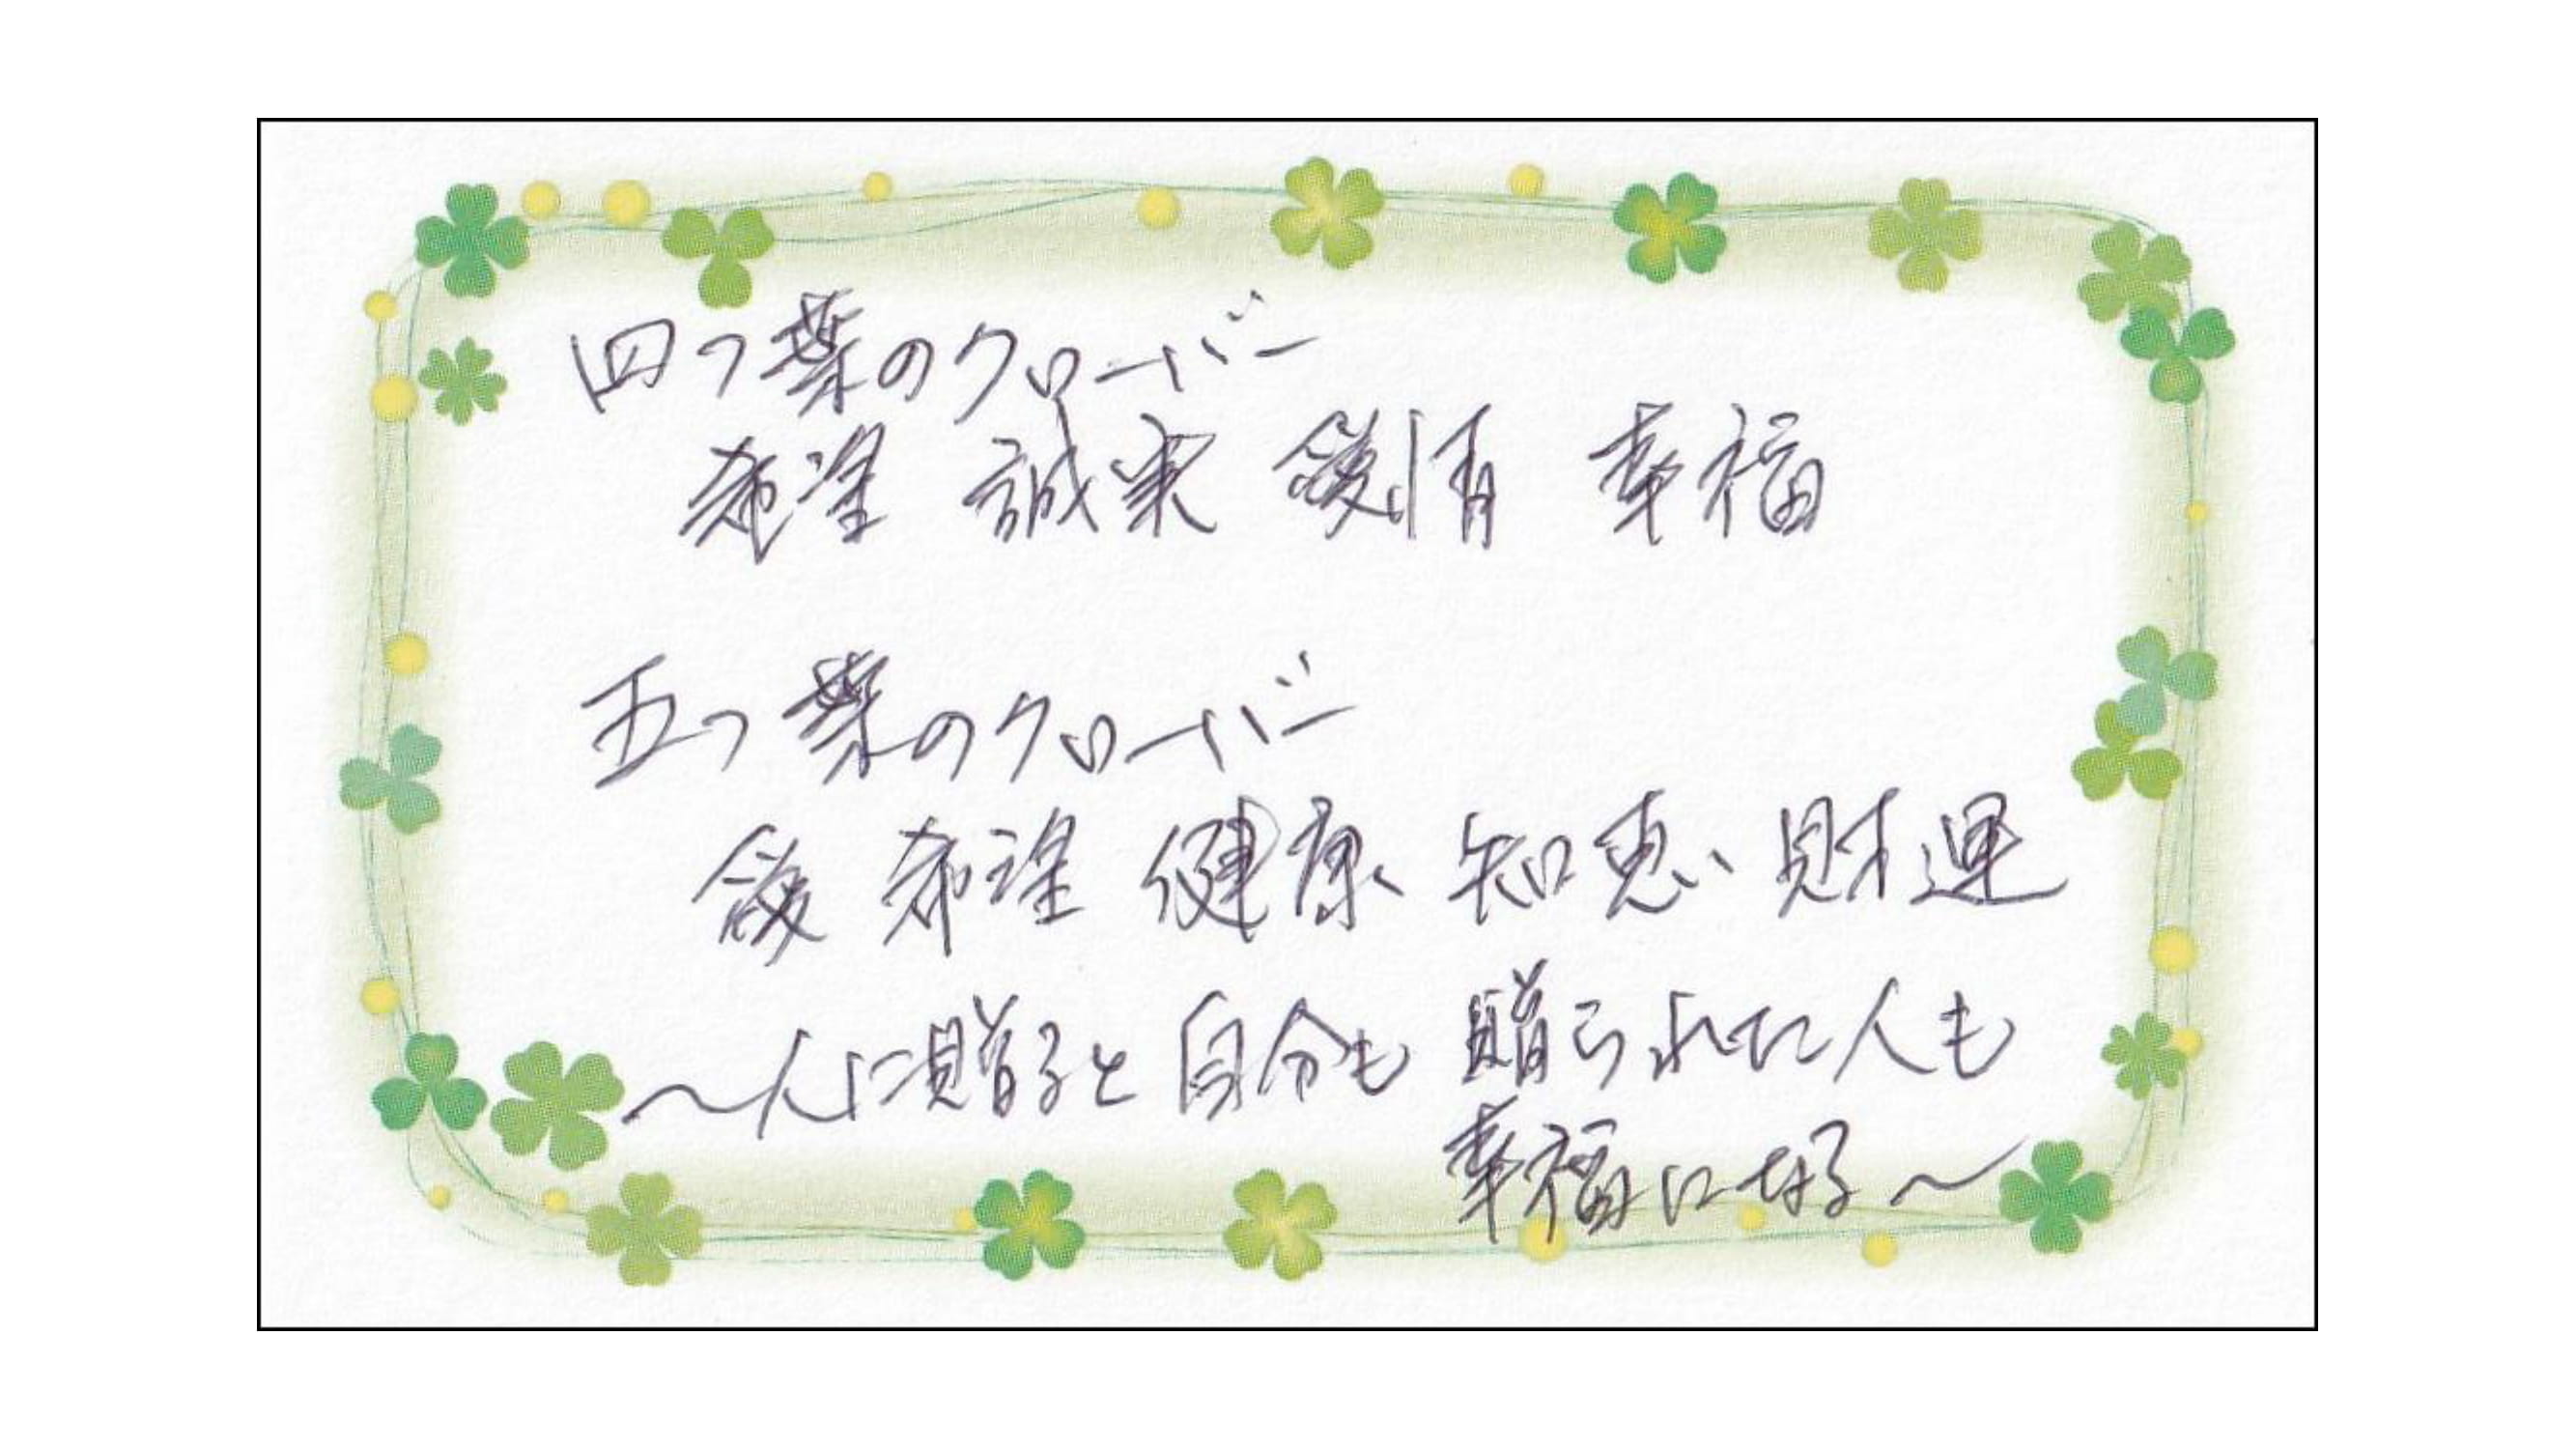 四つ葉のクローバー
希望 誠実 愛情 幸福
五つ葉のクローバー
愛 希望 健康、知恵、財運
～人に贈ると自分も贈られた人も
幸福になる～